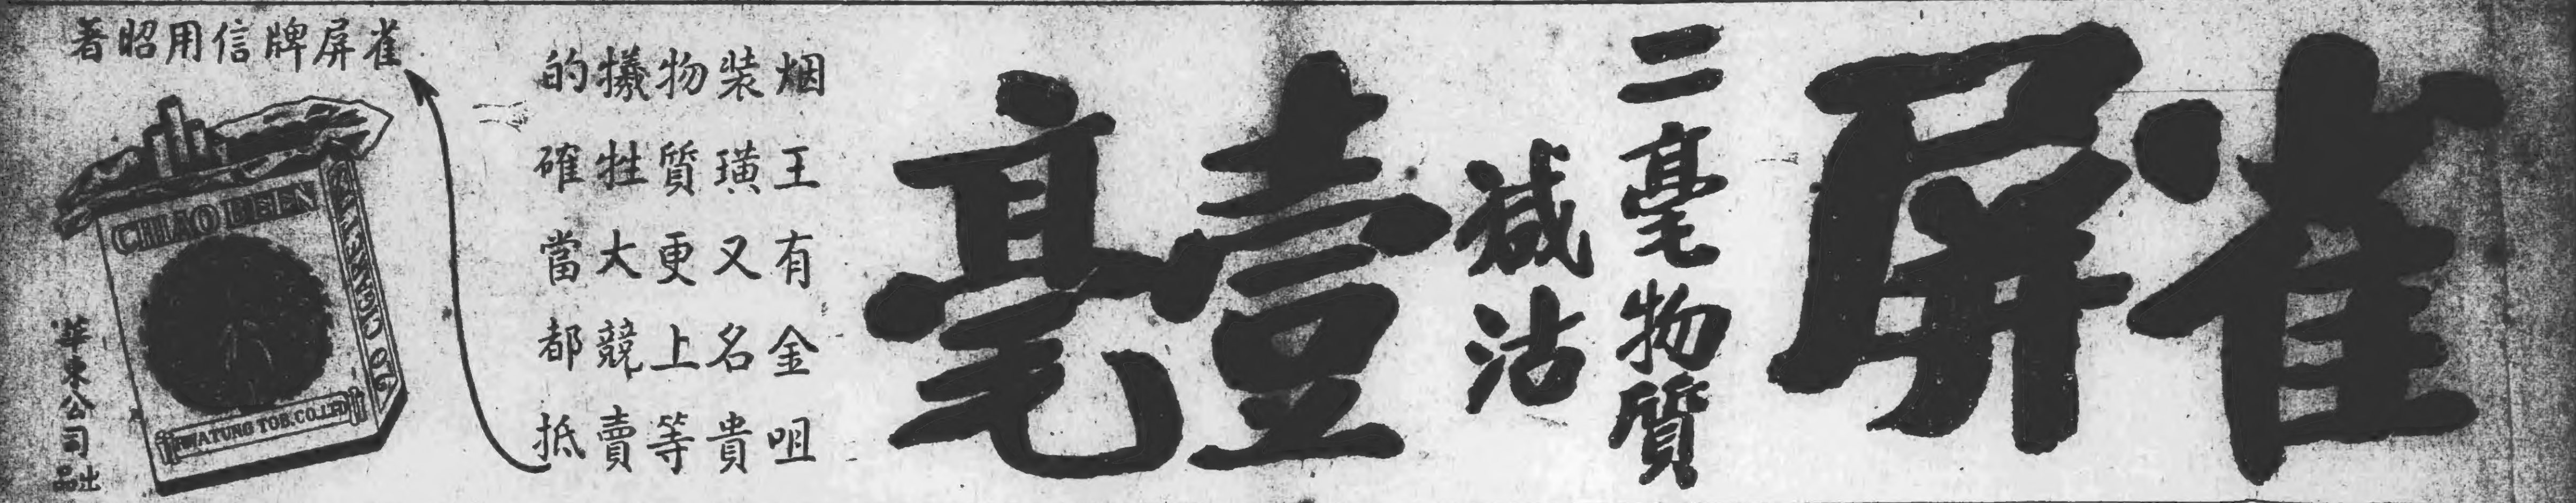 雀屏
二毫物質
減沽
壹毫
烟王有金咀
裝璜又名貴
物質更上等
犧牲大競賣
的確當都抵
雀屏牌信用昭著
CHIAO BEEN
CIGARETTES
WATUNG TOB. CO. LTD
華東公司出品